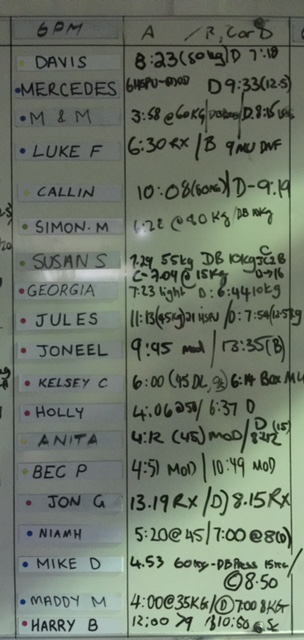 6PM A / B, C or D
DAVIS 8:23 (50kg) D 7:18
MERCEDES HSPU-MOD D 9:33 (12.5)
M & M 3:58 @ 60KG / D 8:15
LUKE F 6:30 RX / B 9 MU DNF
CALLIN 10:08 (50KG) D-9.19
SIMON. M @ 40 Kg / DB 10Kg
SUSAN S 7.29 55kg DB 10kg
C-7.04 @ 15kg
GEORGIA 7:23 light D: 6:44 10kg
JULES 11:13 (45kg) 21 HSPU / D: 7:54 (12.5kg
JONEEL 9:45 mod / 13:35 (B)
KELSEY C 6:00 (95 DL, ) 6:14 Box MU
HOLLY 4.06 @ 50 / 6:37 D
ANITA 4:12 (45) MOD / D (15)
BEC P 4:51 MOD / 10:49 MOD
JON G 13.19 RX / D) 8.15 RX
NIAMH 5:20 @ 45 / 7:00 @ 8 (D)
MIKE D 4.53 60kg - DB Press 15kg /
© 8:50
MADDY M 4:00 @ 35KG / D 7:00 8KG
HARRY B 12:00